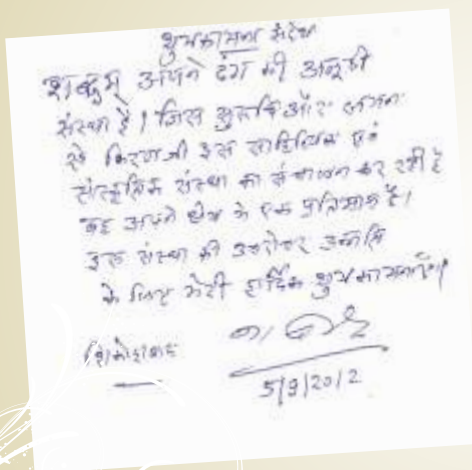 शुभकामना संदेश
शकुम् अपने ढंग की अनूठी
संस्था है। जिस सुरुचि और लगन
से किरण जी इस साहित्यिक एवं
सांस्कृतिक संस्था का संचालन कर रही हैं
वह अपने क्षेत्र में एक प्रतिमान है।
इस संस्था की उत्तरोत्तर उन्नति
के लिए मेरी हार्दिक शुभकामनाएँ।
शिकोहाबाद
5/9/2012